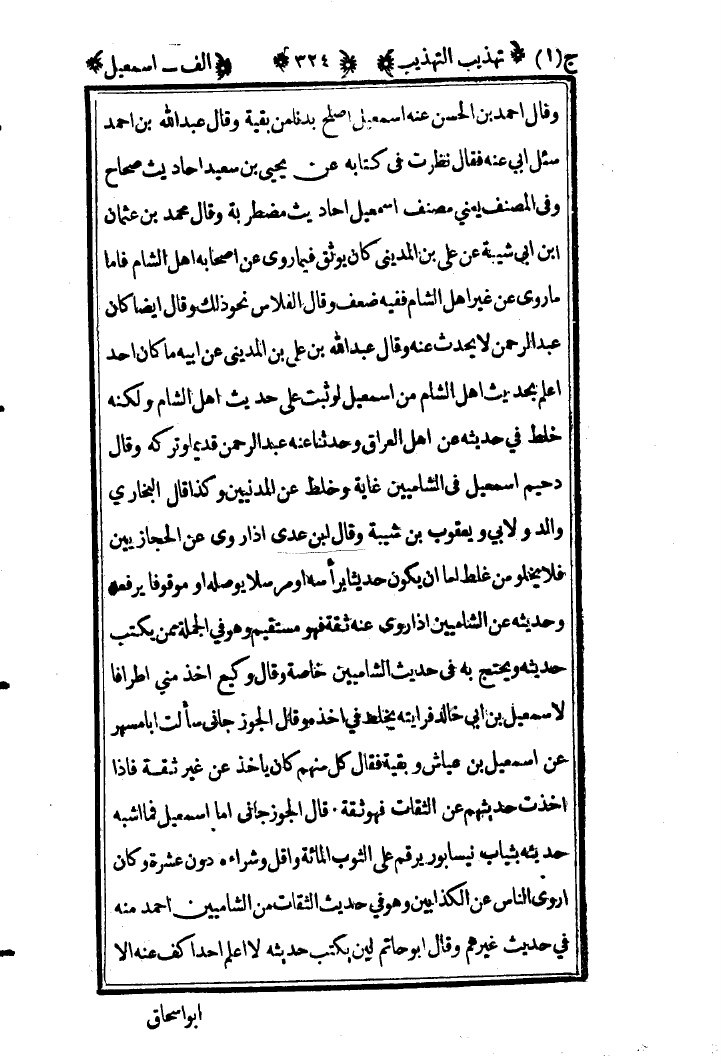 ج(١) ﴿ تهذيب التهذيب ﴾ ﴿ ٣٢٤ ﴾ ﴿ الف ـ اسمعيل ﴾
وقال احمد بن الحسن عنه اسمعيل اصلح بدنا من بقية وقال عبدالله بن احمد
سئل ابي عنه فقال نظرت فى كتابه عن يحيى بن سعيد احاديث صحاح
وفى المصنف يعني مصنف اسمعيل احاديث مضطربة وقال محمد بن عثمان
ابن ابي شيبة عن على بن المدينى كان يوثق فيماروى عن اصحابه اهل الشام فاما
ماروى عن غير اهل الشام ففيه ضعف وقال الفلاس نحو ذلك وقال ايضا كان
عبدالرحمن لا يحدث عنه وقال عبدالله بن علي بن المدينى عن ابيه ما كان احد
اعلم بحديث اهل الشام من اسمعيل لو ثبت على حديث اهل الشام ولكنه
خلط في حديثه عن اهل العراق وحدثنا عنه عبدالرحمن قديما وتركه وقال
دحيم اسمعيل فى الشاميين غاية وخلط عن المدنيين وكذا قال البخاري
والدولابي ويعقوب بن شيبة وقال ابن عدى اذا روى عن الحجازيين
فلا يخلو من غلط اما ان يكون حديثا برأسه او مرسلا يوصله او موقوفا يرفعه
وحديثه عن الشاميين اذا روى عنه ثقة فهو مستقيم وهو في الجملة ممن يكتب
حديثه ويحتج به فى حديث الشاميين خاصة وقال وكيع اخذ مني اطرافا
لاسمعيل بن ابى خالد فرايته يخلط في اخذه وقال الجوزجانى سألت ابا مسهر
عن اسمعيل بن عياش و بقية فقال كل منهم كان ياخذ عن غير ثقة فاذا
اخذت حديثهم عن الثقات فهو ثقة ٠ قال الجوزجانى اما اسمعيل فما اشبه
حديثه بثياب نيسابور يرقم على الثوب المائة واقل وشراءه دون عشرة وكان
اروى الناس عن الكذابين وهو في حديث الثقات من الشاميين احمد منه
في حديث غيرهم وقال ابو حاتم لين يكتب حديثه لا اعلم احدا كف عنه الا
ابواسحاق